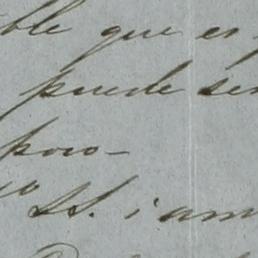 ble que es
puede ser
poco-
SS. i am